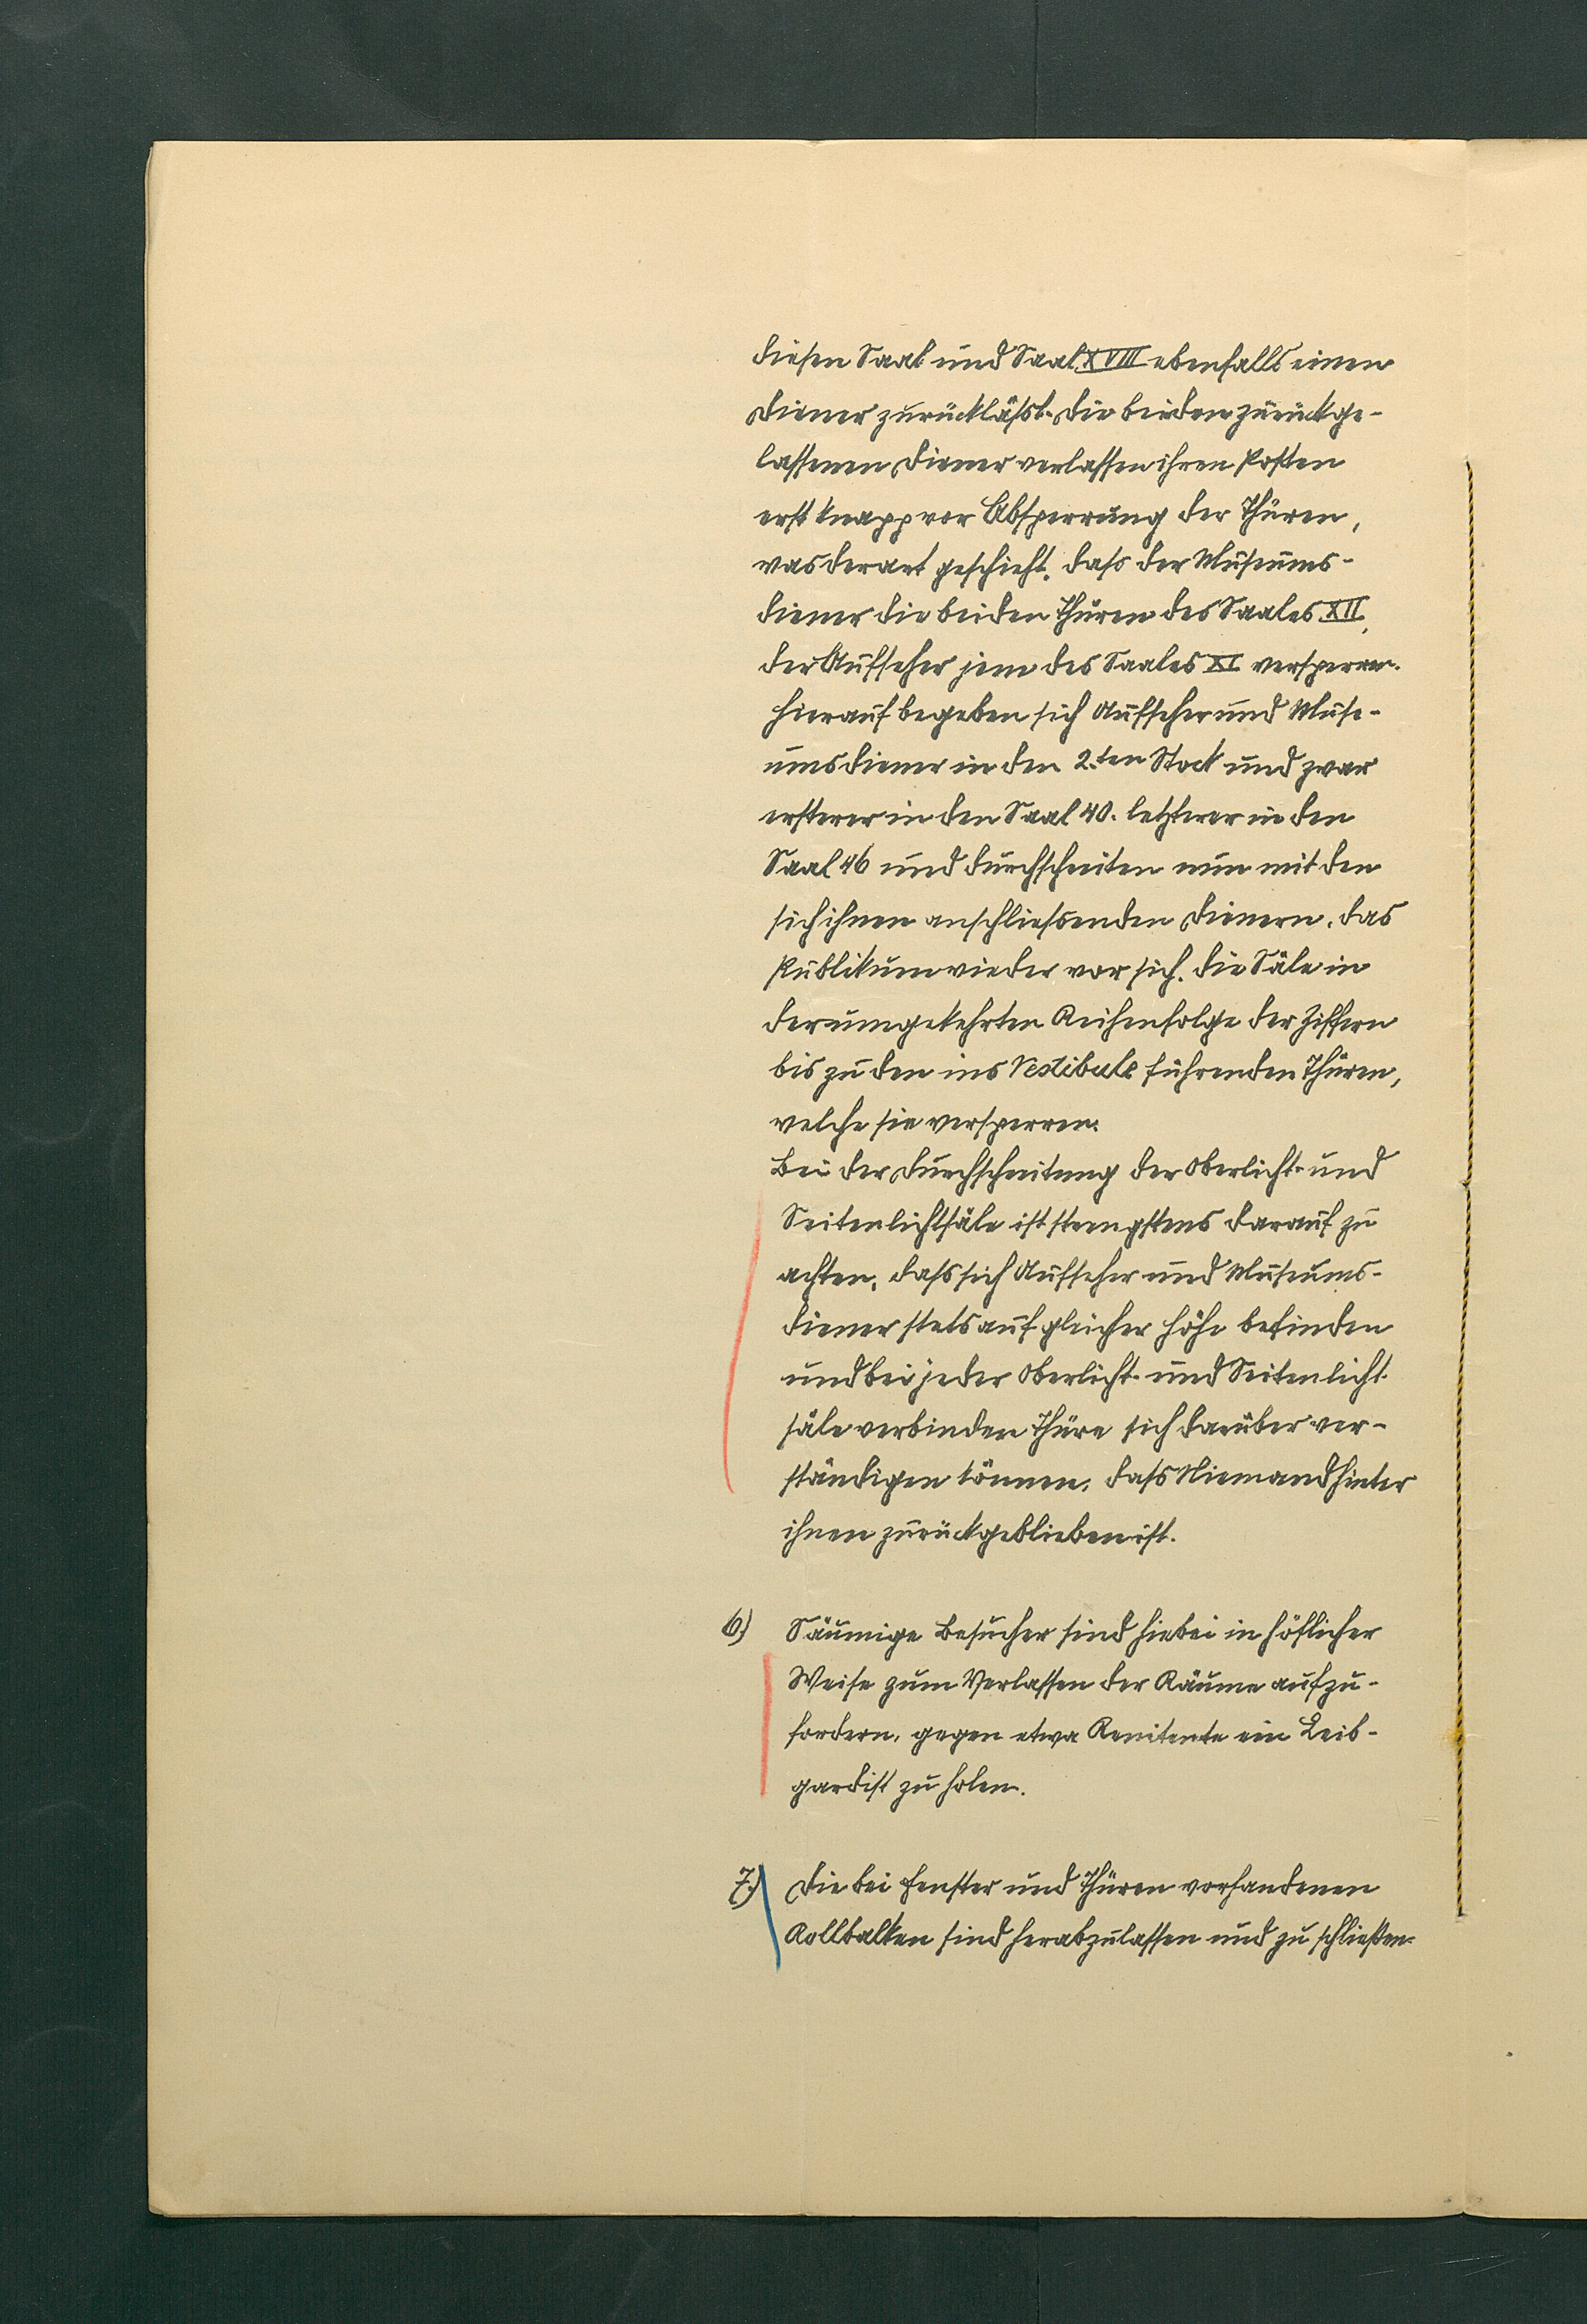 diesen Saal und Saal XVIII ebenfalls einen
Diener zurückläßt. Die beiden zurückge-
lassenen Diener verlassen ihren Posten
erst knapp vor Absperrung der Thüren,
was derart geschieht, daß der Museums-
diener die beiden Thüren des Saales XII,
der Aufseher jene des Saales XI versperren.
Hierauf begeben sich Aufseher und Muse-
umsdiener in den 2.ten Stock und zwar
ersterer in den Saal 40. letzterer in den
Saal 46 und durchschreiten nun mit den
sich ihnen anschließenden Dienern, das
Publikum wieder vor sich, die Säle in
der umgekehrten Reihenfolge der Ziffern
bis zu den ins Vestibule führenden Thüren,
welche sie versperren.
Bei der Durchschreitung der Oberlicht- und
Seitenlichtsäle ist strengstens darauf zu
achten, daß sich Aufseher und Museums-
diener stets auf gleicher Höhe befinden
und bei jeder Oberlicht- und Seitenlicht-
säle verbinden Thüre sich darüber ver-
ständigen können, daß Niemand hinter
ihnen zurückgeblieben ist.
6.) Säumige Besucher sind hiebei in höflicher
Weise zum Verlassen der Räume aufzu-
fordern, gegen etwa Renitente ein Leib-
gardist zu holen.
7.) Die bei Fenster und Thüren vorhandenen
Rollbalken sind herabzulassen und zu schließen.